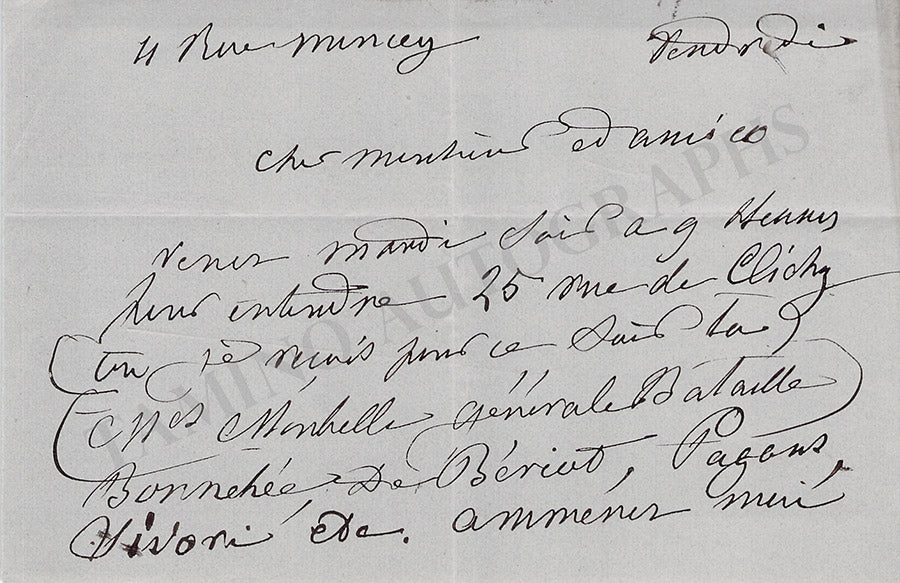 4 Rue Moncey Vendredi
cher monsieur et ami
venez mardi soir a 9 Heures
pour entendre 25 rue de Clichy
(ou je reçois pour ce soir là)
Montbelle générale Bataille
Bonnehée De Bériot, Pagans,
Sivori etc. amménez
TAMINO AUTOGRAPHS